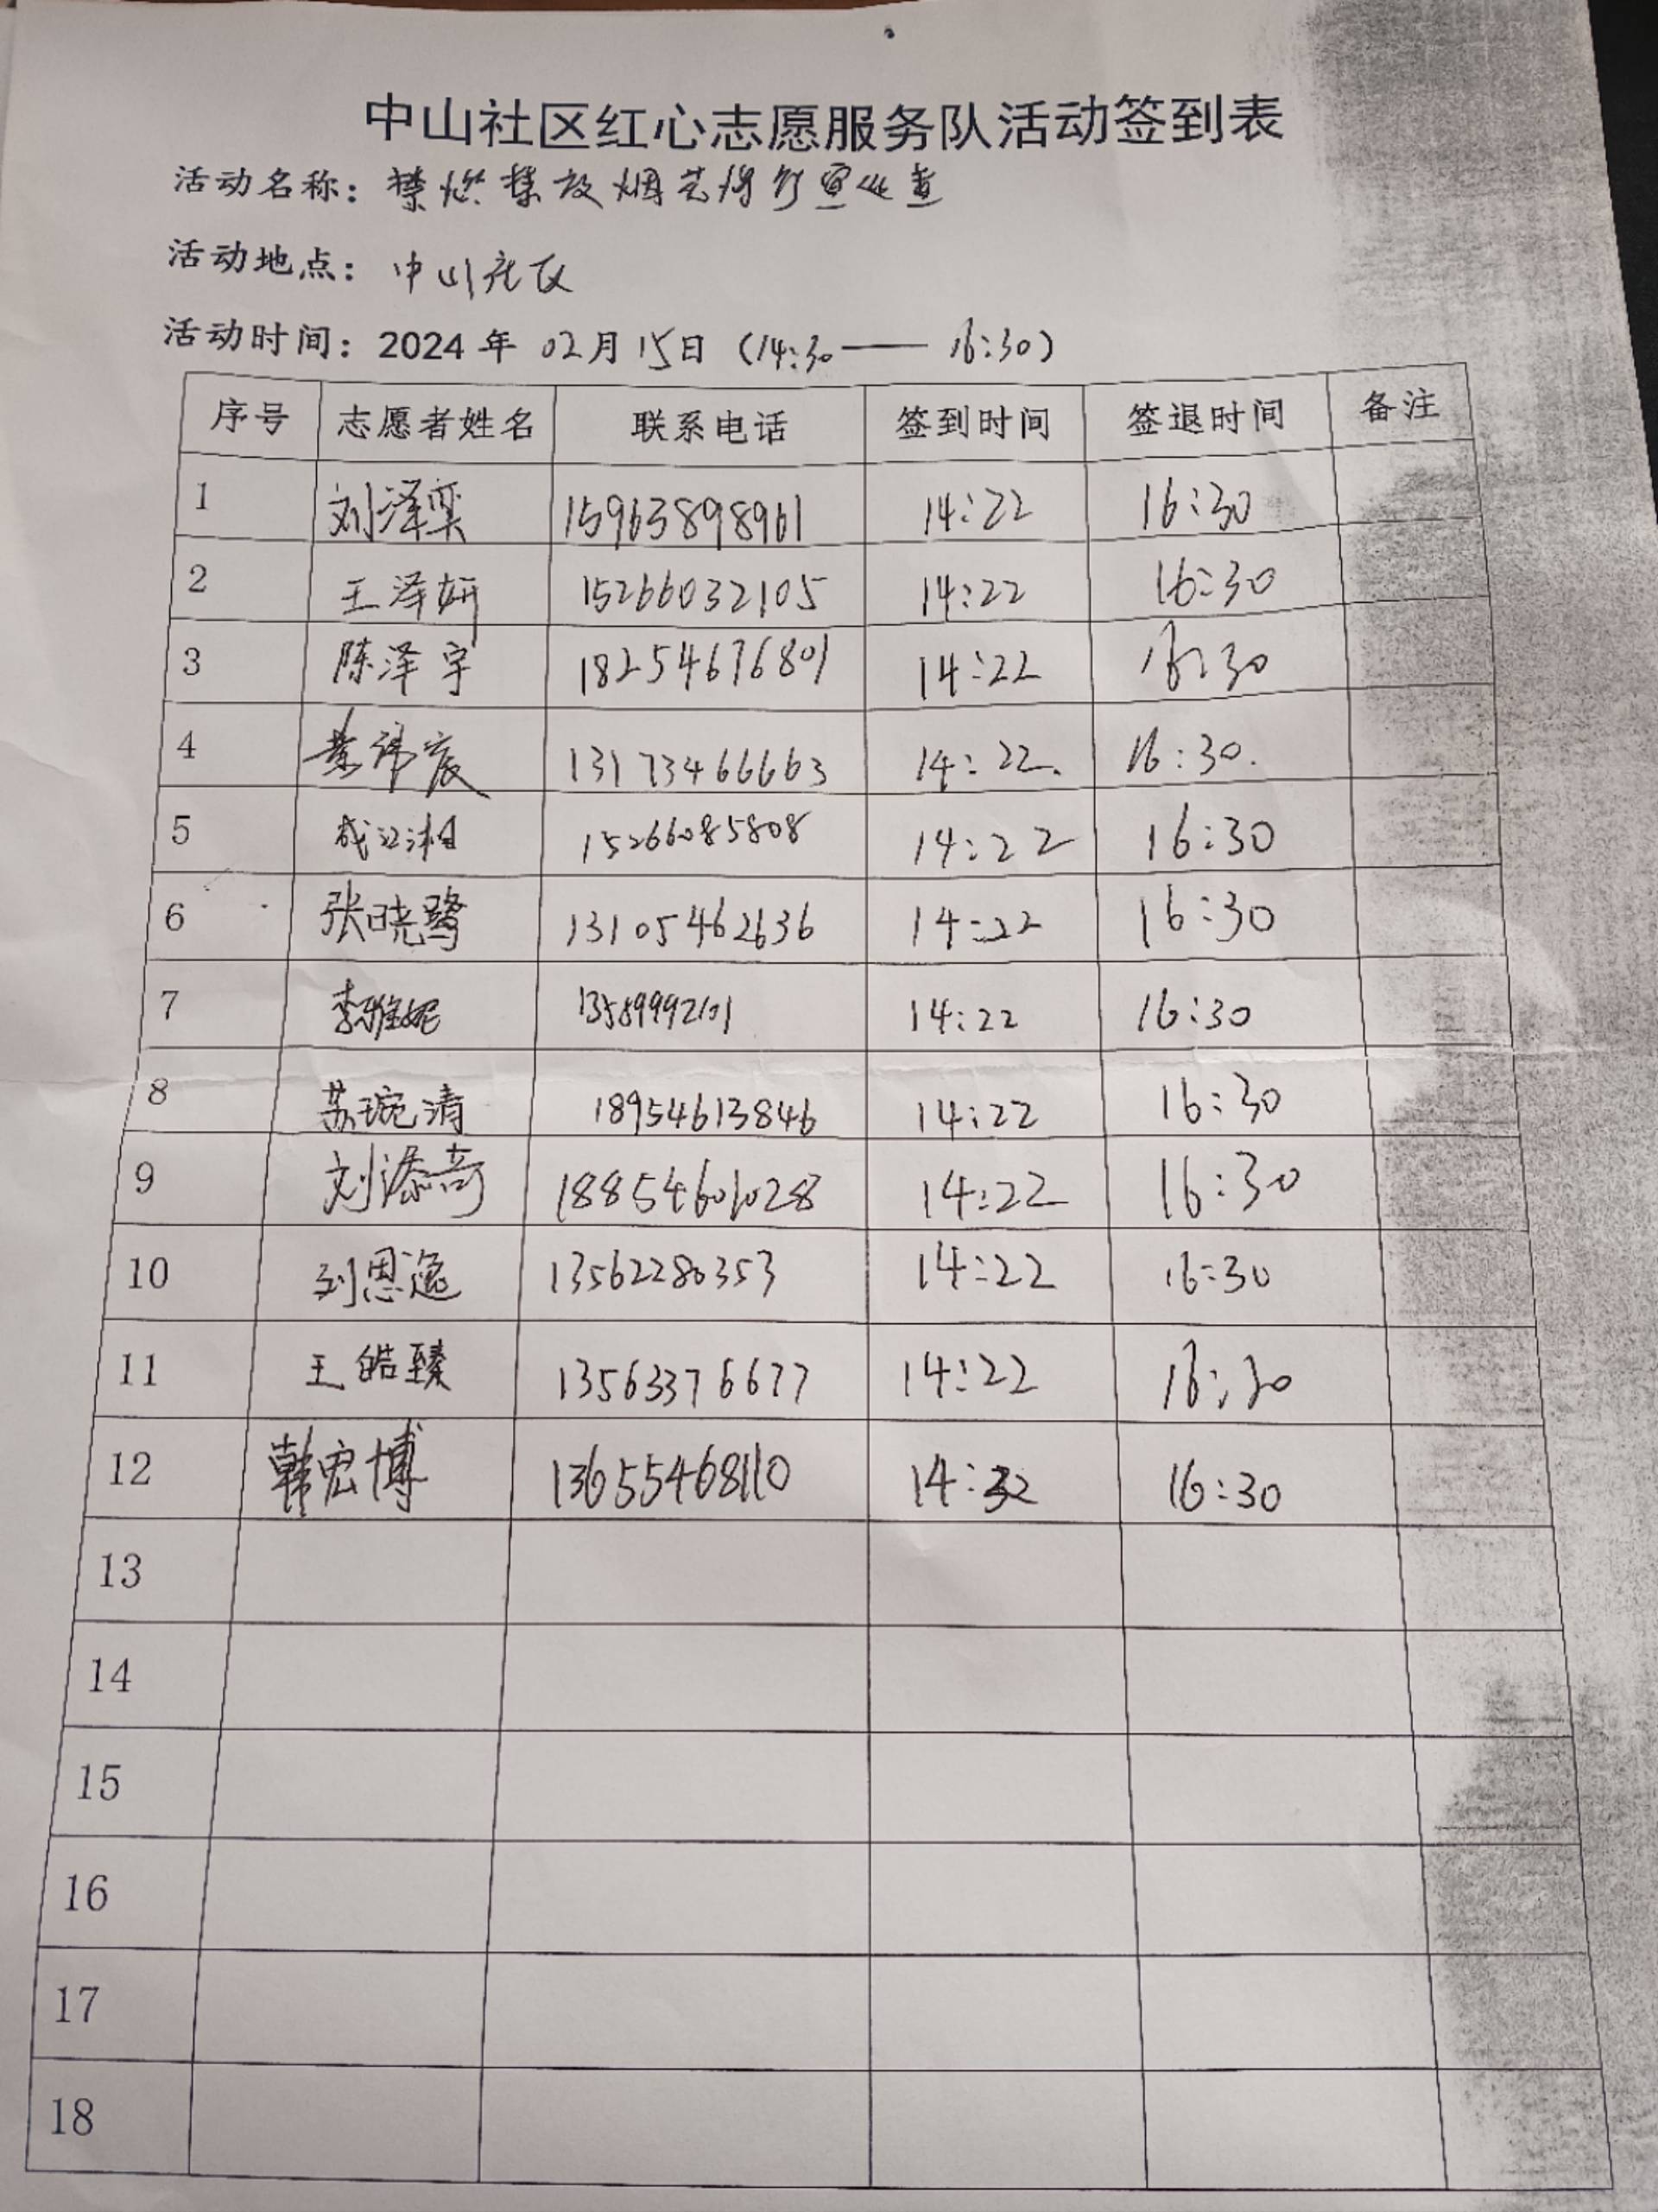 中山社区红心志愿服务队活动签到表
活动名称：禁燃禁放烟花爆竹宣
活动地点：中山社区
活动时间：2024年 02月 15日（14:30—— 16:30）
序号 志愿者姓名 联系电话 签到时间 签退时间 备注
1 刘泽奕 15963898961 14:22 16:30
2 王泽妍 15266032105 14:22 16:30
3 陈泽宇 18254676801 14:22 16:30
4 宸 13173466663 14:22. 16:30.
5 成江湘 15266085808 14:22 16:30
6 张晓鹭 13105462636 14:22 16:30
7 李雅妮 13589992101 14:22 16:30
8 苏琬清 18954613846 14:22 16:30
9 刘添奇 18854601028 14:22 16:30
10 刘恩逸 13562280353 14:22 16:30
11 王皓臻 13563376677 14:22 16:30
12 韩宏博 13655468110 16:30
13
14
15
16
17
18